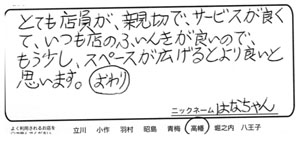 とても店員が、親切で、サービスが良く
て、いつも店のふいんきが良いので、
もう少し、スペースが広げるとより良いと
思います。 おわり
ニックネーム はなちゃん
よく利用されるお店を 立川 小作 羽村 昭島 青梅 高幡 堀之内 八王子